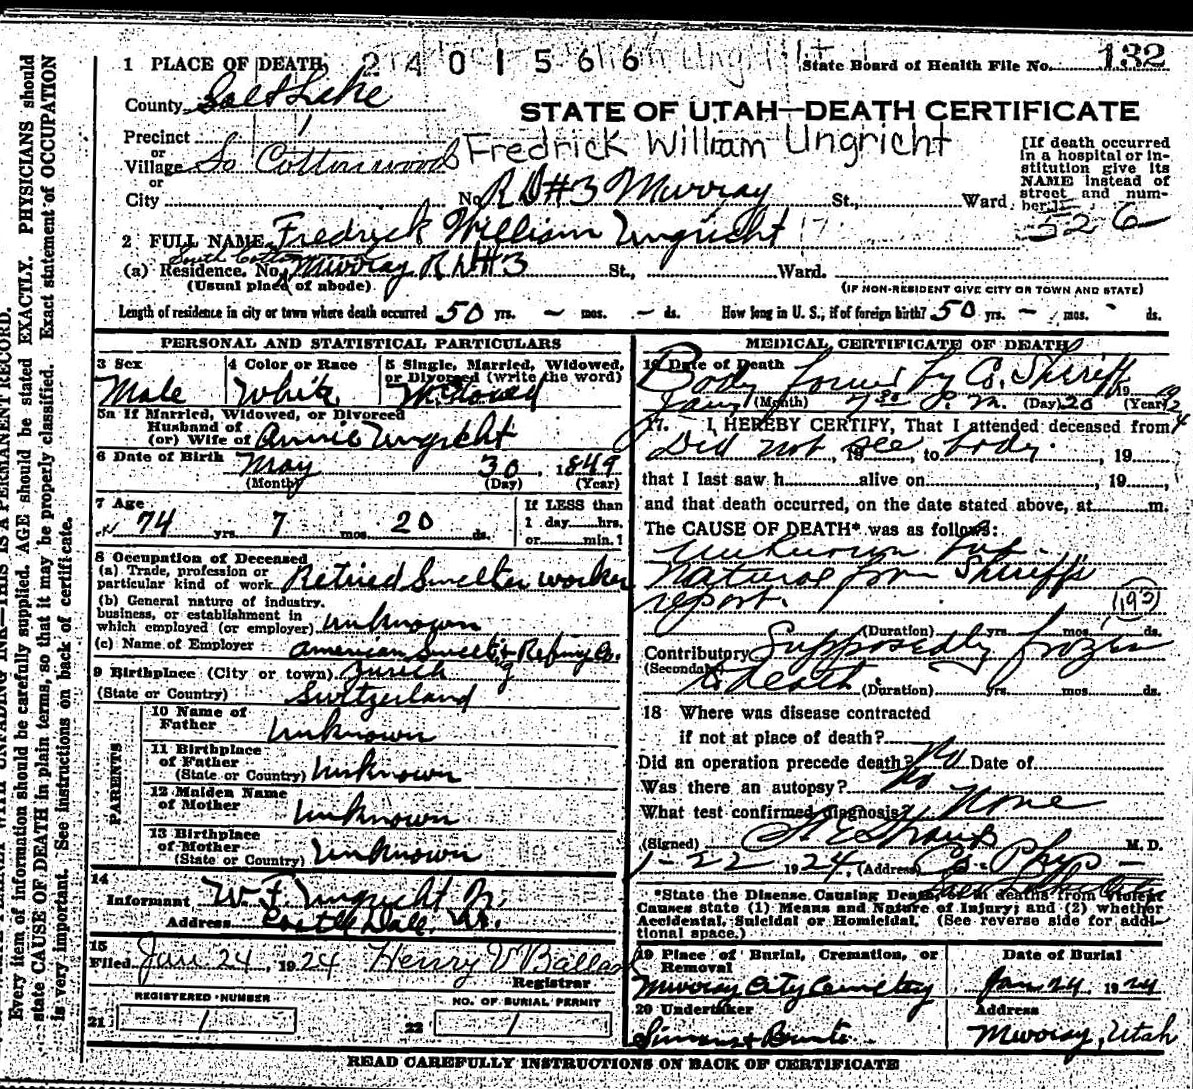 1 PLACE OF DEATH, 2401566
State Board of Health File No. 132
County Salt Lake
STATE OF UTAH—DEATH CERTIFICATE
Precinct 1
Fredrick William Ungricht
or
Village So Cottonwood
or
City No. R D #3 Murray St., Ward
[If death occurred
in a hospital or in-
stitution give its
NAME instead of
street and num-
ber.]
526
2 FULL NAME Fredrick William Ungricht
(a) Residence. No. South Cotton Murray R D #3 St., Ward.
(Usual place of abode)
(IF NON-RESIDENT GIVE CITY OR TOWN AND STATE)
Length of residence in city or town where death occurred 50 yrs. – mos. – ds. How long in U. S., if of foreign birth? 50 yrs. – mos. - ds.
PERSONAL AND STATISTICAL PARTICULARS
3 Sex
Male
4 Color or Race
White
5 Single, Married, Widowed,
or Divorced (write the word)
Widowed
5a If Married, Widowed, or Divorced
Husband of
(or) Wife of Annie Ungricht
6 Date of Birth May 30, 1849
(Month) (Day) (Year)
7 Age
74 yrs. 7 mos. 20 ds.
If LESS than
1 day....hrs.
or....min.?
8 Occupation of Deceased
(a) Trade, profession or
particular kind of work Retired Smelter worker
(b) General nature of industry.
business, or establishment in
which employed (or employer) unknown
(c) Name of Employer American Smelt'g & Refing Co.
9 Birthplace (City or town) Zurich
(State or Country) Switzerland
PARENTS
10 Name of
Father Unknown
11 Birthplace
of Father
(State or Country) Unknown
12 Maiden Name
of Mother Unknown
13 Birthplace
of Mother
(State or Country) Unknown
14
Informant W. F. Ungricht Jr.
Address Castle Dale, Ut.
15
Filed Jan 24, 1924 Henry V Ballard
Registrar
REGISTERED NUMBER
21 1
NO. OF BURIAL PERMIT
22 1
MEDICAL CERTIFICATE OF DEATH
16 Date of Death
Body found by Co. Sheriff
Jany 7 30 P.m. 20 1924
(Month) (Day) (Year)
17. I HEREBY CERTIFY, That I attended deceased from
Did not see, 19, to body, 19
that I last saw h alive on , 19 ,
and that death occurred, on the date stated above, at m.
The CAUSE OF DEATH* was as follows:
Unknown but
Natural from Sheriff's
report.
(Duration) yrs. mos. ds.
Contributory Supposedly frozen
(Secondary)
to death (Duration) yrs. mos. ds.
18 Where was disease contracted
if not at place of death?
Did an operation precede death? No Date of
Was there an autopsy? No
What test confirmed diagnosis? None
(Signed) M. D.
1-22 1924, (Address) Co. Phys –
*State the Disease Causing Death, or in deaths from Violent
Causes state (1) Means and Nature of Injury; and (2) whether
Accidental, Suicidal or Homicidal. (See reverse side for addi-
tional space.)
19 Place of Burial, Cremation, or
Removal
Murray City Cemetery
Date of Burial
Jan. 24 1924
20 Undertaker
Address
Murray, Utah
READ CAREFULLY INSTRUCTIONS ON BACK OF CERTIFICATE
Every item of information should be carefully supplied. AGE should be stated EXACTLY. PHYSICIANS should
state CAUSE OF DEATH in plain terms, so that it may be properly classified. Exact statement of OCCUPATION
is very important. See instructions on back of certificate.